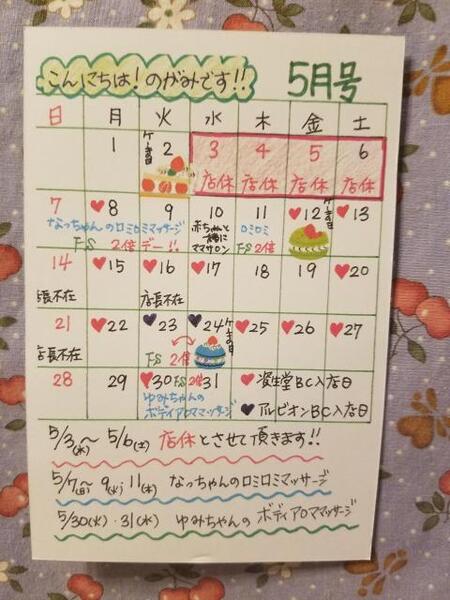 こんにちは！のがみです!!
5月号
日 月 火 水 木 金 土
1 ケーキの日 2 3 4 5 6
店休 店休 店休 店休
7 ♥8 9 10 11 ♥12 ケーキの日 ♥13
なっちゃんのロミロミマッサージ 赤ちゃんと一緒にママサロン ロミロミ
FS 2倍デー!! FS 2倍
14 ♥15 ♥16 ♥17 18 19 ♥20
店長不在 店長不在
21 ♥22 ♥23 ♥24 ケーキの日 ♥25 ♥26 ♥27
店長不在 FS 2倍
28 29 ♥30 FS 2倍 31 ♥資生堂BC入店日
ゆみちゃんの
ボディアロママッサージ ♥アルビオンBC入店日
5/3(水)～5/6(土) 店休とさせて頂きます!!
5/7(日)～9(火) 11(木) なっちゃんのロミロミマッサージ
5/30(火)・31(水) ゆみちゃんの ボディアロママッサージ